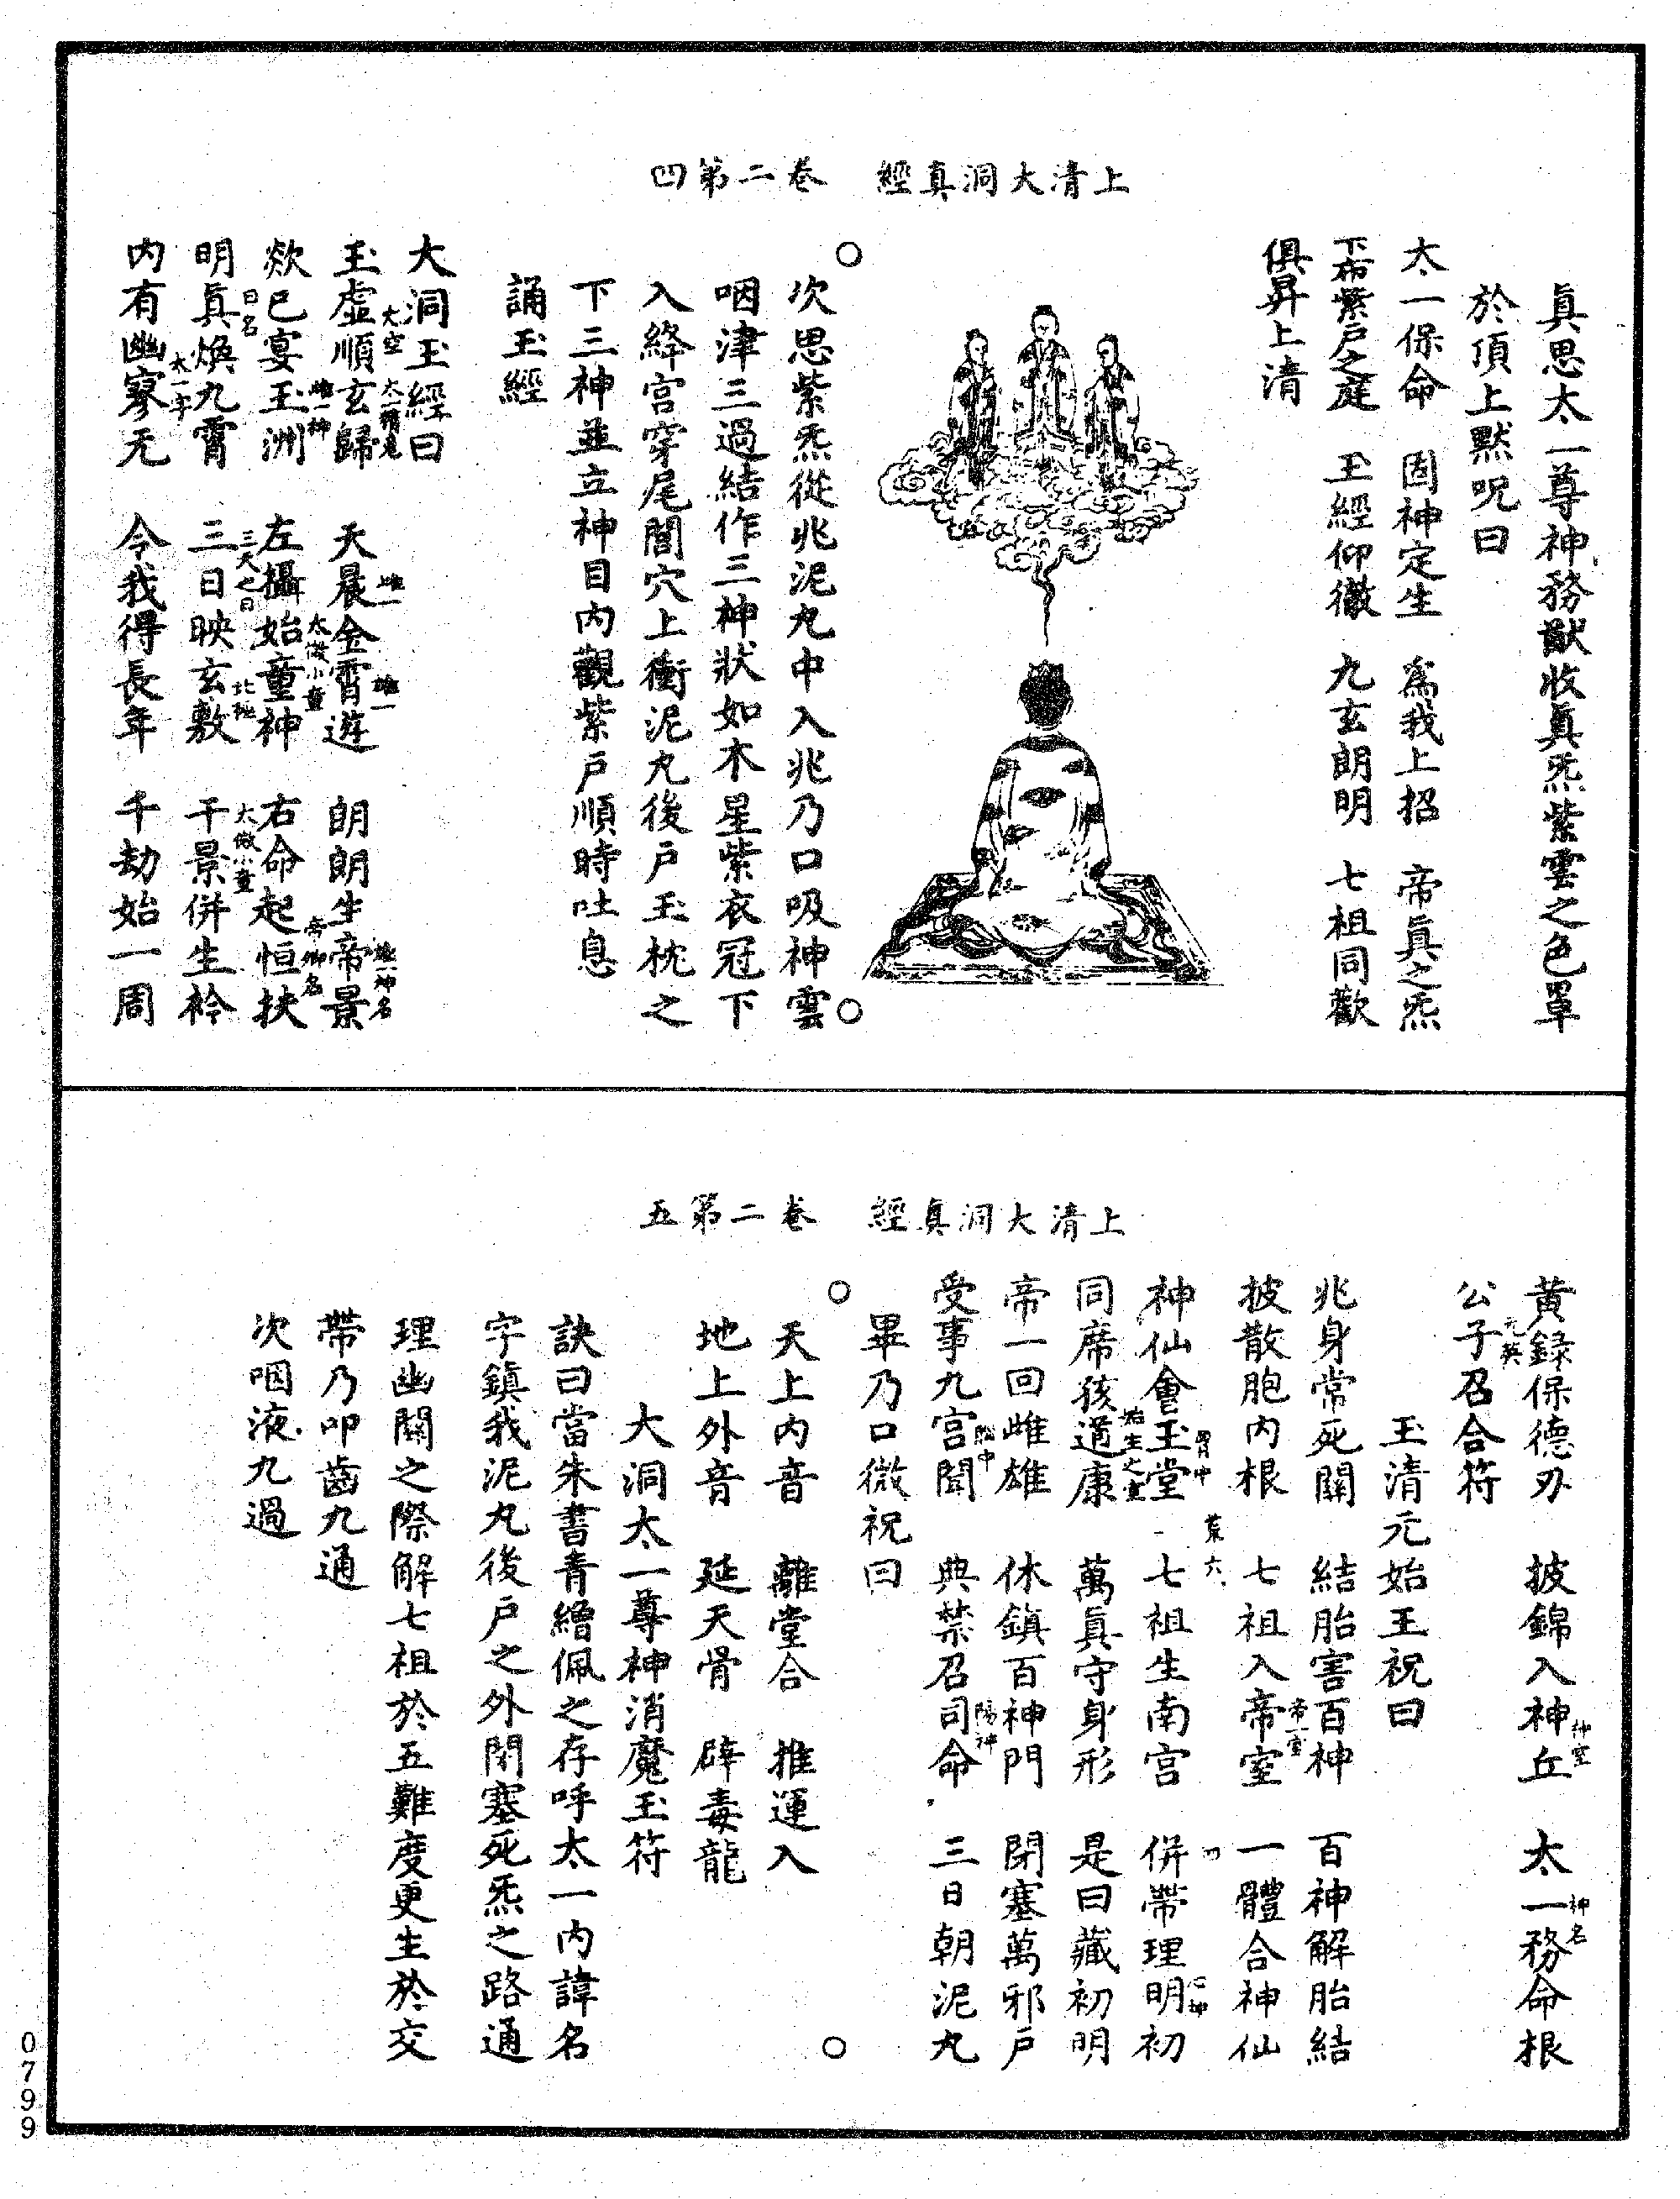 上清大洞真經　卷二第四
眞思太一尊神務猷收眞炁紫雲之色罩
於頂上黙呪曰
太一保命　固神定生　爲我上招　帝眞之炁
下布紫戸之庭　玉經仰徹　九玄朗明　七祖同歡
俱昇上清
次思紫炁從兆泥丸中入兆乃口吸神雲
咽津三過結作三神狀如木星紫衣冠下
入絳宮穿尾閭穴上衝泥丸後戸玉枕之
下三神並立神目内觀紫戸順時吐息
誦玉經
大洞玉經曰
玉虛大空順玄歸太一　天晨雌一金霄雄一遊　朗朗生帝景雄一神名
欻已宴玉洲雌一神　左攝始童神太微小童　右命起恒扶帝卿名
明眞日名煥九霄　三日三天之日映玄敷　千景併生衿太微小童
内有幽寥无太一字　令我得長年　千劫始一周
上清大洞真經　卷二第五
黄録保德刃　披錦入神丘神室　太一務命根神名
公子元英召合符
玉清元始王祝曰
兆身常死關　結胎害百神　百神解胎結
披散胞内根　七祖入帝室帝一室　一體合神仙
神仙會玉堂胃中　七祖生南宮　併帶理明初心神
同席孩道康始生之室　萬眞守身形　是日藏初明
帝一回雌雄　休鎮百神門　閉塞萬邪戸
受事九宮腦中聞　典禁召司命陽神　三日朝泥丸
畢乃口微祝曰
天上内音　離堂合　推運入
地上外音　延天骨　辟毒龍
大洞太一尊神消魔玉符
訣曰當朱書青繒佩之存呼太一内諱名
字鎮我泥丸後戸之外閉塞死炁之路通
理幽關之際解七祖於五難度更生於交
帶乃叩齒九通
次咽液九過
0799